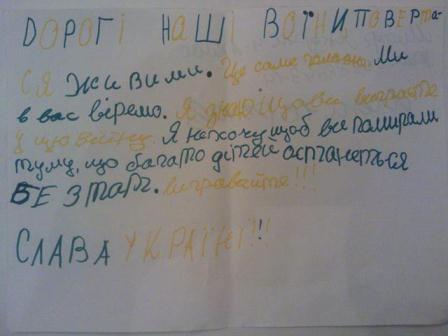 DОРОГІ НАШІ ВОЇНИ ПОВЕРТА-
СЯ ЖИВИМИ. Це саме головне. Ми
в вас віремо. Я знаю що ви виграєте
у цю війну. Я нехочу щоб ви памирали
тому, що багато дітей астанеться
БЕЗ ТАТ. вигравайте!!!
СЛАВА УКРАЇНІ!!!